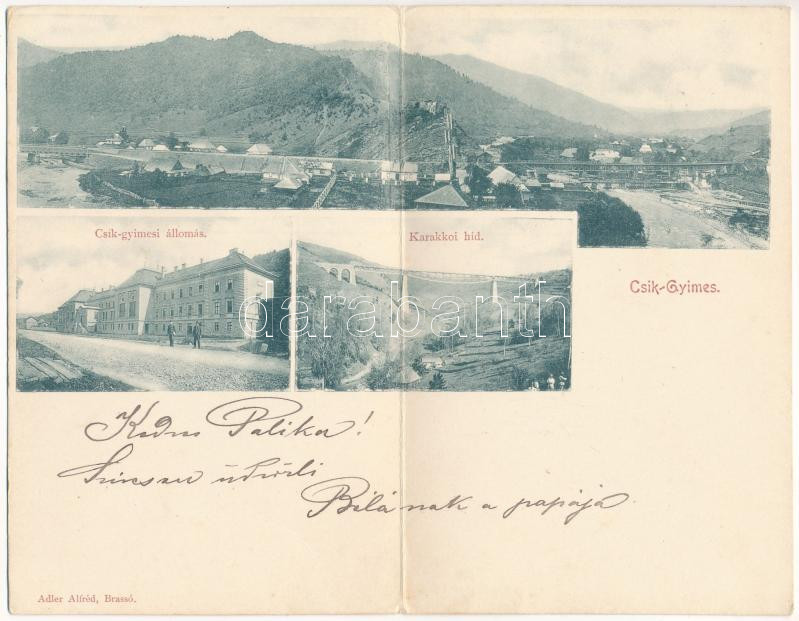 Csik-gyimesi állomás.
Karakkoi híd.
Csik-Gyimes.
darabanth
Kedves Palika!
Szivesen üdvözli
Bélának a papája
Adler Alfréd, Brassó.